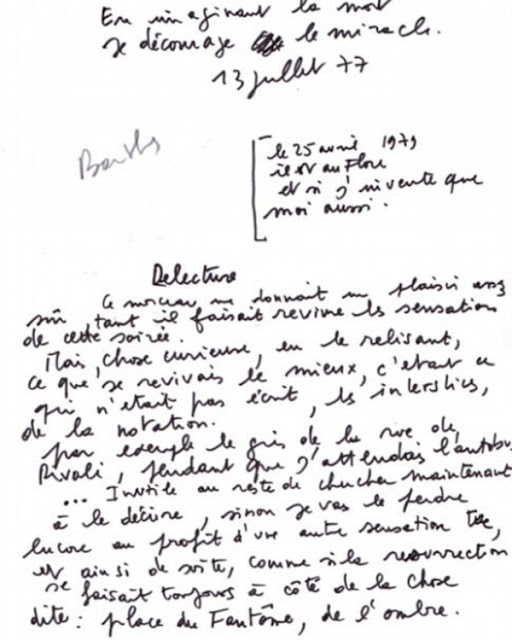 En imaginant la mort
je décourage le miracle.
13 juillet 77
Barthes
le 25 avril 1979
il est au Flore
et si j'invente que
moi aussi.
Relecture
Ce morceau me donnait un plaisir assez
sûr, tant il faisait revivre les sensations
de cette soirée.
Mais, chose curieuse, en le relisant,
ce que je revivais le mieux, c'était ce
qui n'était pas écrit, les interstices,
de la notation.
par exemple le gris de la rive de
Rivoli, pendant que j'attendais l'autobus
... Inutile au reste de chercher maintenant
à le décrire, sinon je vais le perdre
encore au profit d'une autre sensation tue,
et ainsi de suite, comme si la resurrection
se faisait toujours à côté de la chose
dite : place du Fantôme, de l'ombre.